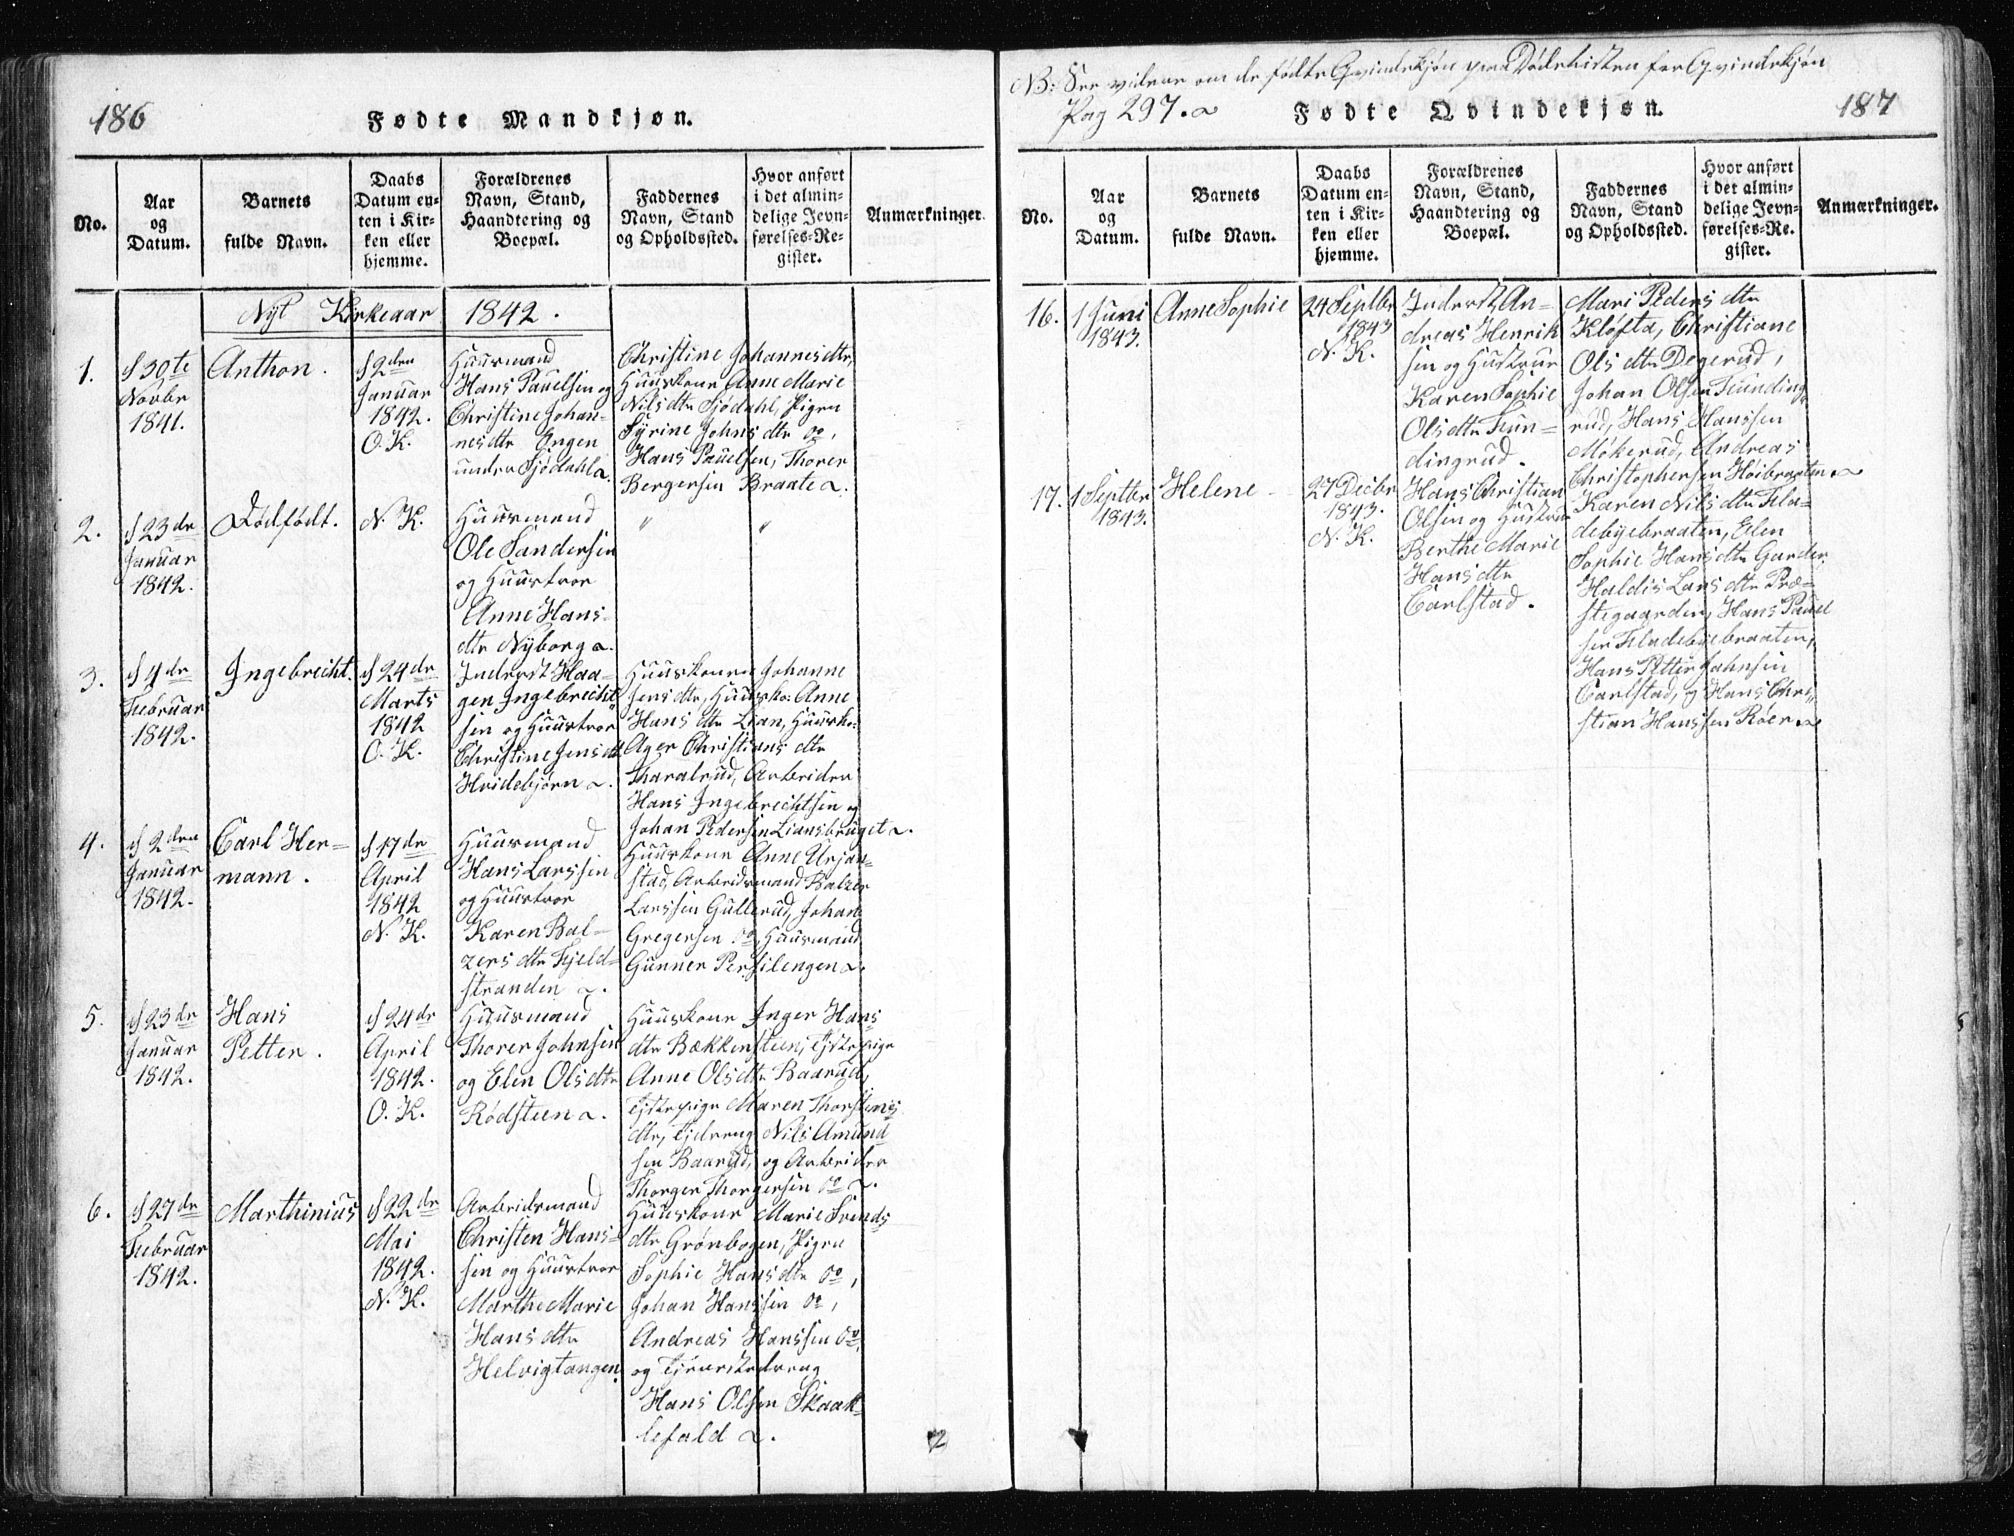 186
Fødte Mandkjøn.
No.
Aar og Datum.
Barnets fulde Navn.
Daabs Datum enten i Kirken eller hjemme.
Forældrenes Navn, Stand, Haandtering og Boepæl.
Faddernes Navn, Stand og Opholdssted.
Hvor anført i det almindelige Jevnførelses-Register.
Anmærkninger.
Nyt Kirkeaar 1842.
1.
d 30te
Novbr
1841.
Anthon.
d 2den
Januar
1842.
O. K.
Huusmand
Hans Pauelsen og
Christine Johan-
nesdtr Engen
under Sjødahl
Christine Johannesdtr,
Huuskone Anne Marie
Nilsdtr Sjødahl, Pigen
Syrine Johnsdtr do,
Hans Pauelsen, Thorer
Bergersen Braate
2.
d 23de
Januar
1842.
Dødfødt.
N. K.
Huusmand
Ole Sandersen
og Huustroe
Anne Hans-
dtr Nyborg
" "
3.
d 4de
Februar
1842.
Ingebrecht.
d 24de
Marts
1842
O. K.
Inderst Haa-
gen Ingebrecht-
sen og Huustroe
Christine Jensdtr
Hvidebjørn
Huuskonen Johanne
Jensdtr, Huusko: Anne
Hansdtr Lian, Huusko:
Ager Christiansdtr
Tharalrud, Arbeider
Hans Ingebrechtsen og
Johan Pedersen Liansbruget
4.
d 2den
Januar
1842.
Carl Her-
mann.
d 17de
April
1842
N. K.
Huusmand
Hans Larssen
og Huustroe
Karen Bal-
zersdtr Fjeld-
stranden
Huuskone Anne Urjan-
stad, Arbeidsmand Balzer
Larssen Gullerud, Johan
Gregersen do, Huusmand
Gunner Persilengen
5.
d 23de
Januar
1842.
Hans
Petter.
d 24de
April
1842.
O. K.
Huusmand
Thorer Johnsen
og Elen Olsdtr
Rødsteen
Huuskone Inger Hans
dtr Bækkensteen, Tjstepige
Anne Olsdtr Baarud,
Tjstepige Maren Thorstens
dtr, Tjdreng Nils Amund
sen Baarud, og Arbeider
Thorger Thorgersen do
6.
d 27de
Februar
1842.
Marthinius
d 22de
Mai
1842.
N. K.
Arbeidsmand
Christen Hans-
sen og Huustroe
Marthe Marie
Hansdtr
Helvigtangen.
Huuskone Marie Svends
dtr Grønbogen, Pigen
Sophie Hansdtr do,
Johan Hanssen do,
Andreas Hanssen do,
og Tjenestedreng
Hans Olsen Skaak-
lefald
NB: See videre om de fødte Qvindekjøn paa Dødelisten for Qvindekjøn
Pag 297.
Fødte Qvindekjøn.
187
No.
Aar og Datum.
Barnets fulde Navn.
Daabs Datum enten i Kirken eller hjemme.
Forældrenes Navn, Stand, Haandtering og Boepæl.
Faddernes Navn, Stand og Opholdssted.
Hvor anført i det almindelige Jevnførelses-Register.
Anmærkninger.
16.
1 Juni
1843.
Anne Sophie
24 Septbr
1843
N. K.
Inderst An-
dreas Henrik
sen og Hustrue
Karen Sophie
Olsdtr Fun-
dingrud.
Mari Pedersdtr
Kløfta, Christiane
Olsdtr Degerud,
Johan Olsen Funding
rud, Hans Hanssen
Møkerud, Andreas
Christophersen Høibraaten
17.
1 Septbr
1843.
Helene
27 Decbr
1843.
N. K.
Hans Christian
Olsen og Hustrue
Berthe Marie
Hansdtr
Carlstad.
Karen Nilsdtr Fla-
debyebraaten, Elen
Sophie Hansdtr Garder,
Haldis Larsdtr Præ-
stegaarden, Hans Pauel
sen Fladebyebraaten,
Hans Petter Johnsen
Carlstad, og Hans Chri-
stian Hanssen Røer